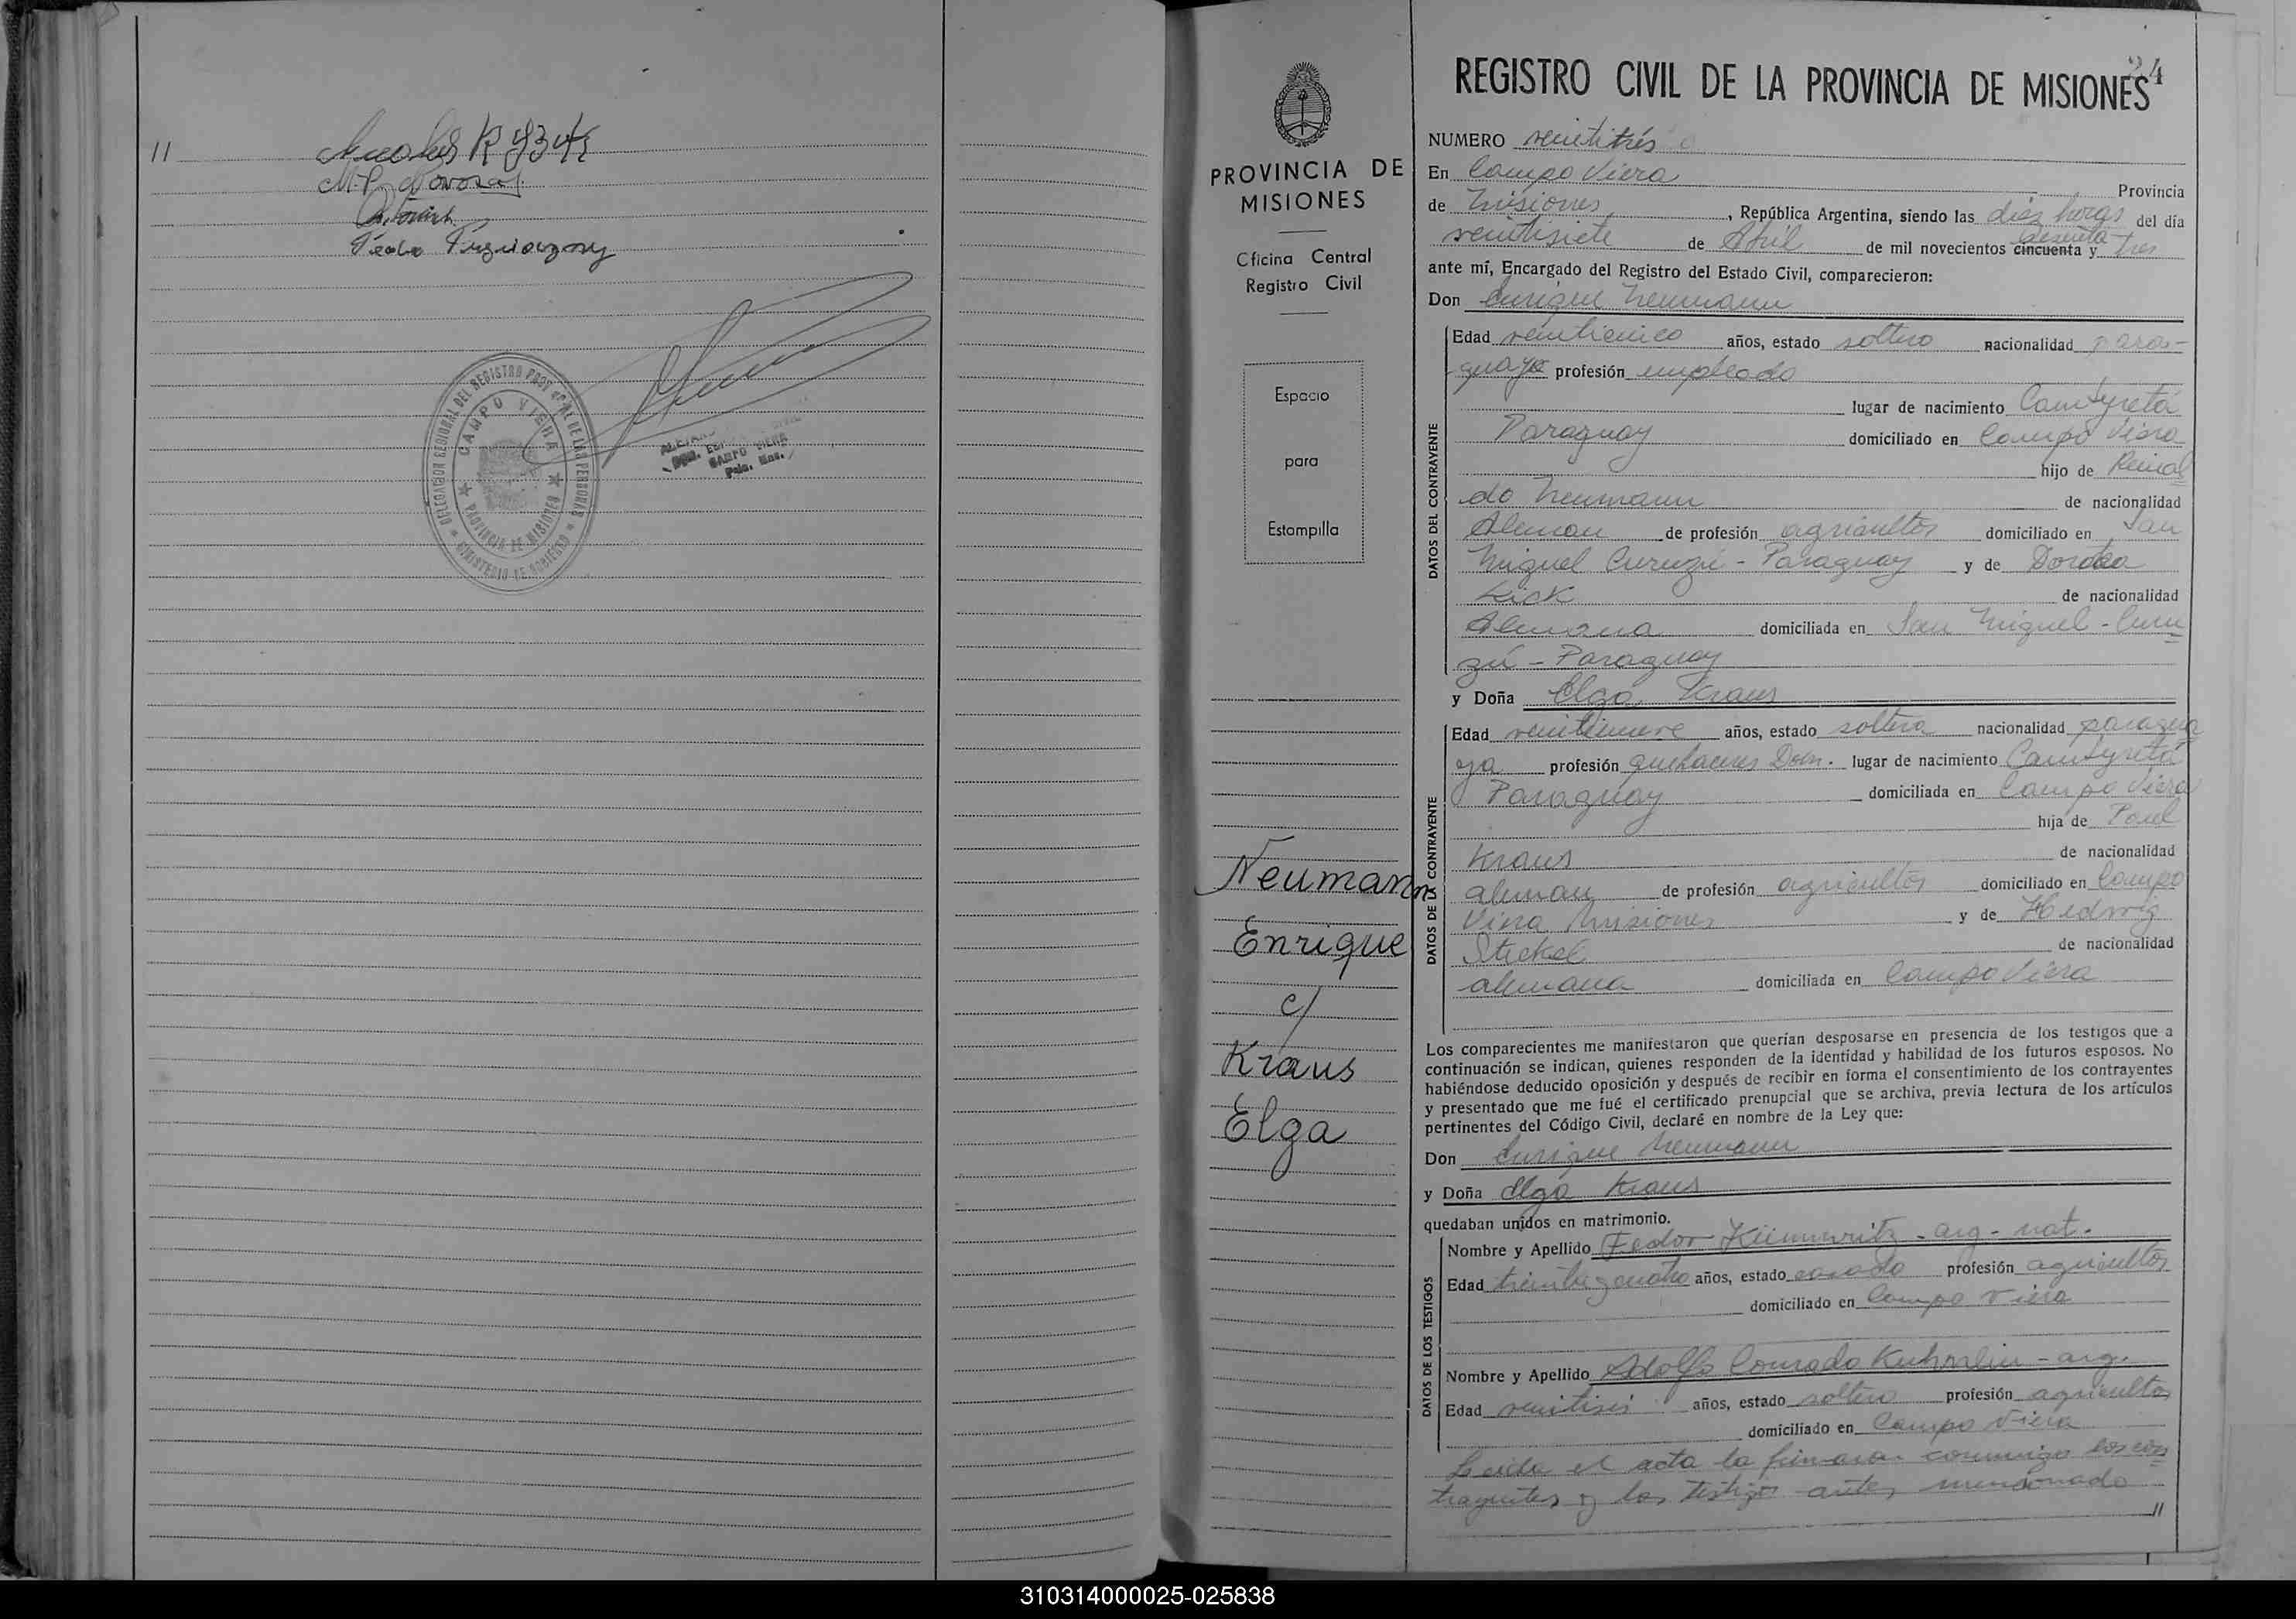 11
DELEGACION REGIONAL DEL REGISTRO PROVINCIAL DE LAS PERSONAS
CAMPO VIERA
PROVINCIA DE MISIONES
MINISTERIO DE GOBIERNO
CAMPO VIERA
Pcia. Mns.
PROVINCIA DE
MISIONES
Oficina Central
Registro Civil
Espacio
para
Estampilla
Neumann
Enrique
c/
Kraus
Elga
24
REGISTRO CIVIL DE LA PROVINCIA DE MISIONES
NUMERO veintitrés
En Campo Viera Provincia
de Misiones, República Argentina, siendo las diez horas del día
veintisiete de Abril de mil novecientos cincuenta sesenta y tres
ante mí, Encargado del Registro del Estado Civil, comparecieron:
Don Enrique Neumann
DATOS DEL CONTRAYENTE
Edad veinticinco años, estado soltero nacionalidad para-
guaya profesión empleado
lugar de nacimiento Cantyretá
Paraguay domiciliado en Campo Viera
hijo de Reinal
do Neumann de nacionalidad
Aleman de profesión agricultor domiciliado en San
Miguel Curuzú - Paraguay y de Dorotea
Lick de nacionalidad
Alemana domiciliada en San Miguel - Curu
zú - Paraguay
y Doña Elga Kraus
DATOS DE LA CONTRAYENTE
Edad veintinueve años, estado soltera nacionalidad paragua
ya profesión quehaceres Dom. lugar de nacimiento Cantyretá
Paraguay domiciliada en Campo Viera
hija de Paul
Kraus de nacionalidad
aleman de profesión agricultor domiciliado en Campo
Viera Misiones y de Hedwig
Steckel de nacionalidad
alemana domiciliada en Campo Viera
Los comparecientes me manifestaron que querían desposarse en presencia de los testigos que a
continuación se indican, quienes responden de la identidad y habilidad de los futuros esposos. No
habiéndose deducido oposición y después de recibir en forma el consentimiento de los contrayentes
y presentado que me fué el certificado prenupcial que se archiva, previa lectura de los artículos
pertinentes del Código Civil, declaré en nombre de la Ley que:
Don Enrique Neumann
y Doña Elga Kraus
quedaban unidos en matrimonio.
DATOS DE LOS TESTIGOS
Nombre y Apellido Fedor - arg - nat.
Edad treinta y cuatro años, estado casado profesión agricultor
domiciliado en Campo Viera
Nombre y Apellido Adolfo Conrado Kuhnlein - arg.
Edad veintiseis años, estado soltero profesión agricultor
domiciliado en Campo Viera
Leida el acta la firmaron conmigo los con
trayentes y los testigos antes mensionado
11
310314000025-025838